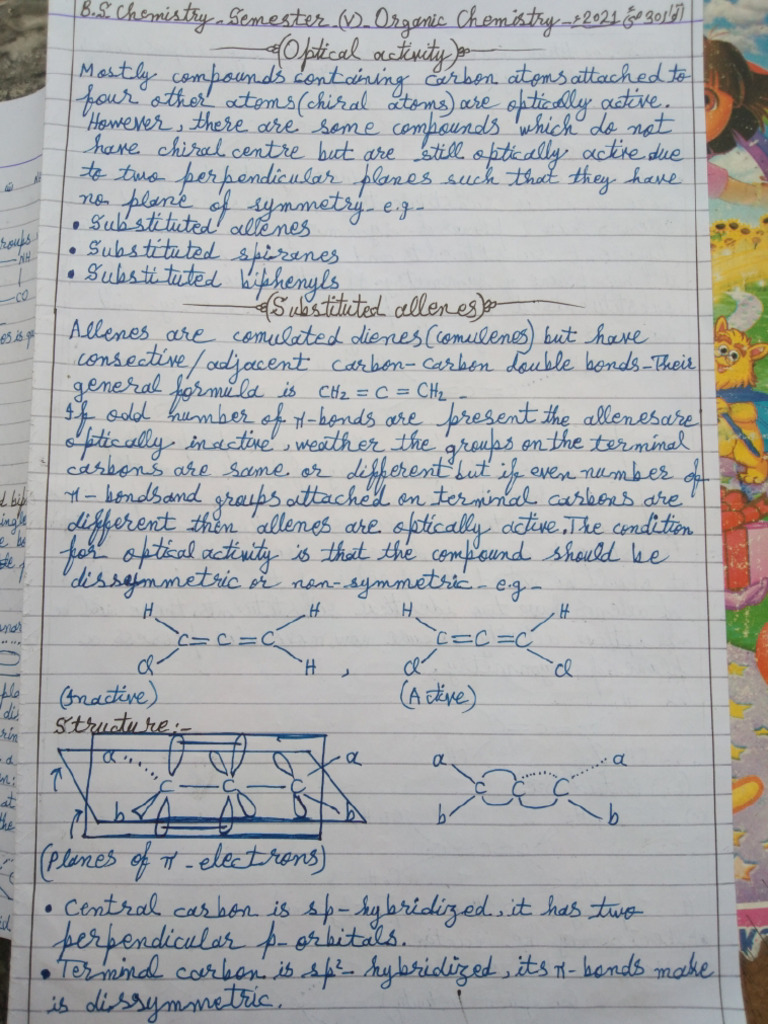 B.S Chemistry - Semester (V) - Organic Chemistry - 2021
(Optical activity)
Mostly compounds containing carbon atoms attached to
four other atoms (chiral atoms) are optically active.
However, there are some compounds which do not
have chiral centre but are still optically active due
to two perpendicular planes such that they have
no plane of symmetry - e.g -
• Substituted allenes
• Substituted spiranes
• Substituted biphenyls
(Substituted allenes)
Allenes are comulated dienes (comulenes) but have
consective/adjacent carbon-carbon double bonds - Their
general formula is CH2 = C = CH2 -
If odd number of π-bonds are present the allenes are
optically inactive, weather the groups on the terminal
carbons are same or different but if even number of
π-bonds and groups attached on terminal carbons are
different then allenes are optically active. The condition
for optical activity is that the compound should be
dissymmetric or non-symmetric - e.g -
H H H H
C = C = C C = C = C
Cl H , Cl Cl
(Inactive) (Active)
Structure:-
a a a a
C - C - C C C C
b b b b
(Planes of π-electrons)
• Central carbon is sp-hybridized, it has two
perpendicular p-orbitals.
• Terminal carbon is sp²-hybridized, its π-bonds make
is dissymmetric.